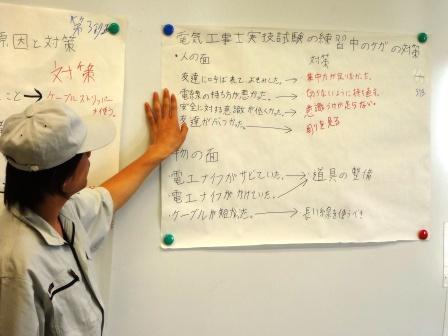 第3班
原因と対策
対策
こと→ケーブルストリッパー
を使う。
電気工事士実技試験の練習中のケガの対策
・人の面
対策
友達に呼ばれてよそみした。→集中力が足りなかった。
・電線の持ち方が悪かった。→切らないように持ち変える。
・安全に対する意識が低くかった。→意識力が足りない
・友達がぶつかった。→周りを見る
物の面
・電工ナイフがサビていた。→道具の整備
・電工ナイフがかけていた。
・ケーブルが短かった。→長い線を使うべき